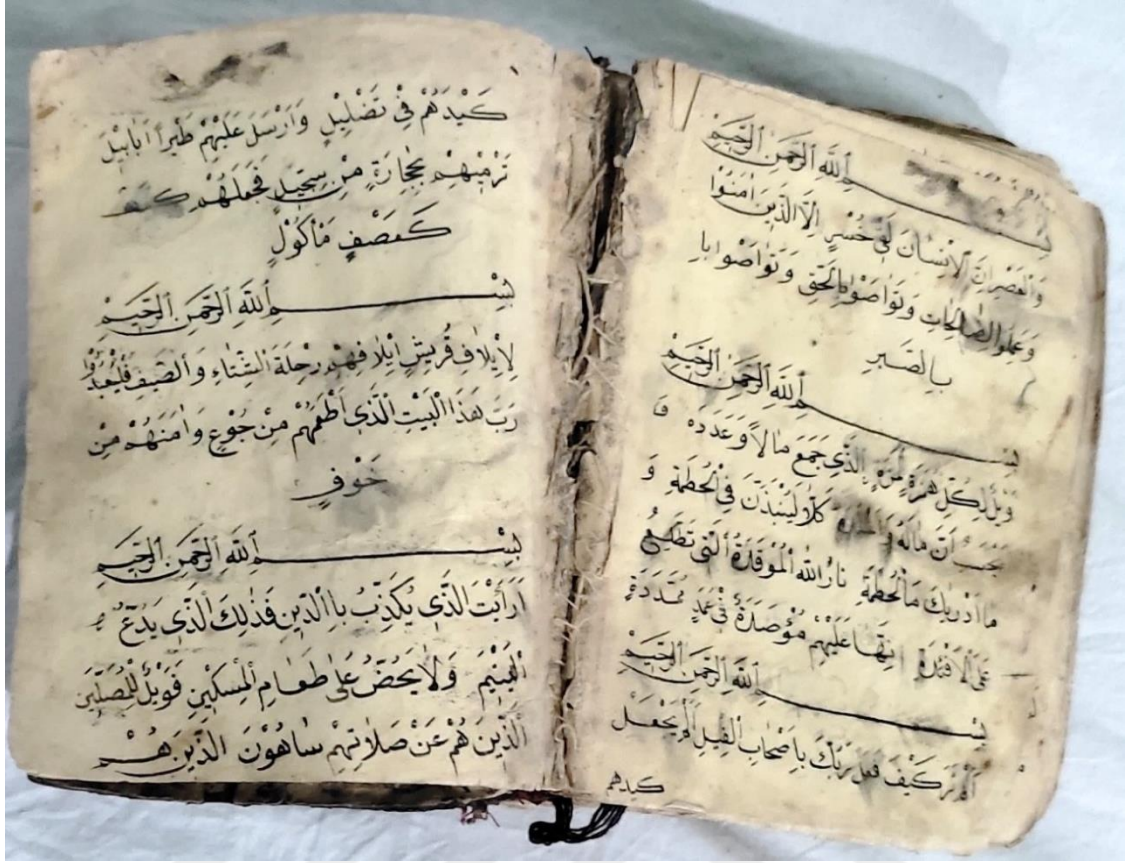 بسم الله الرحمن الرحيم
والعصر ان الانسان لفى خسر الا الذين امنوا
وعملوا الصالحات وتواصوا بالحق وتواصوا با
بالصبر
بسم الله الرحمن الرحيم
ويل لكل همزة لمزة الذي جمع مالا وعدده
يحسب ان ماله كلا لينبذن في الحطمة و
ما ادريك ما الحطمة نار الله الموقدة التي تطلع
على الافئدة انها عليهم مؤصدة في عمد ممددة
بسم الله الرحمن الرحيم
الم تر كيف فعل ربك باصحاب الفيل الم يجعل
كيدهم
كَيْدَهُمْ فِي تَضْلِيلٍ وَاَرْسَلَ عَلَيْهِمْ طَيْراً اَبَابِيلَ
تَرْمِيْهِمْ بِحِجَارَةٍ مِنْ سِجِّيلٍ فَجَعَلَهُمْ
كَعَصْفٍ مَأْكُوْلٍ
بسم الله الرحمن الرحيم
لِاِيْلَافِ قُرَيْشٍ اِيْلَافِهِمْ رِحْلَةَ الشِّتَاءِ وَالصَّيْفِ فَلْيَعْبُدُوْا
رَبَّ هٰذَا الْبَيْتِ الَّذِي اَطْعَمَهُمْ مِنْ جُوْعٍ وَاٰمَنَهُمْ مِنْ
خَوْفٍ
بسم الله الرحمن الرحيم
اَرَاَيْتَ الَّذِي يُكَذِّبُ باالدِّينِ فَذٰلِكَ الَّذِي يَدُعُّ
الْيَتِيْمَ وَلَا يَحُضُّ عَلٰى طَعَامِ الْمِسْكِيْنِ فَوَيْلٌ لِلْمُصَلِّيْنَ
الَّذِيْنَ هُمْ عَنْ صَلَاتِهِمْ سَاهُوْنَ الَّذِيْنَ هُمْ